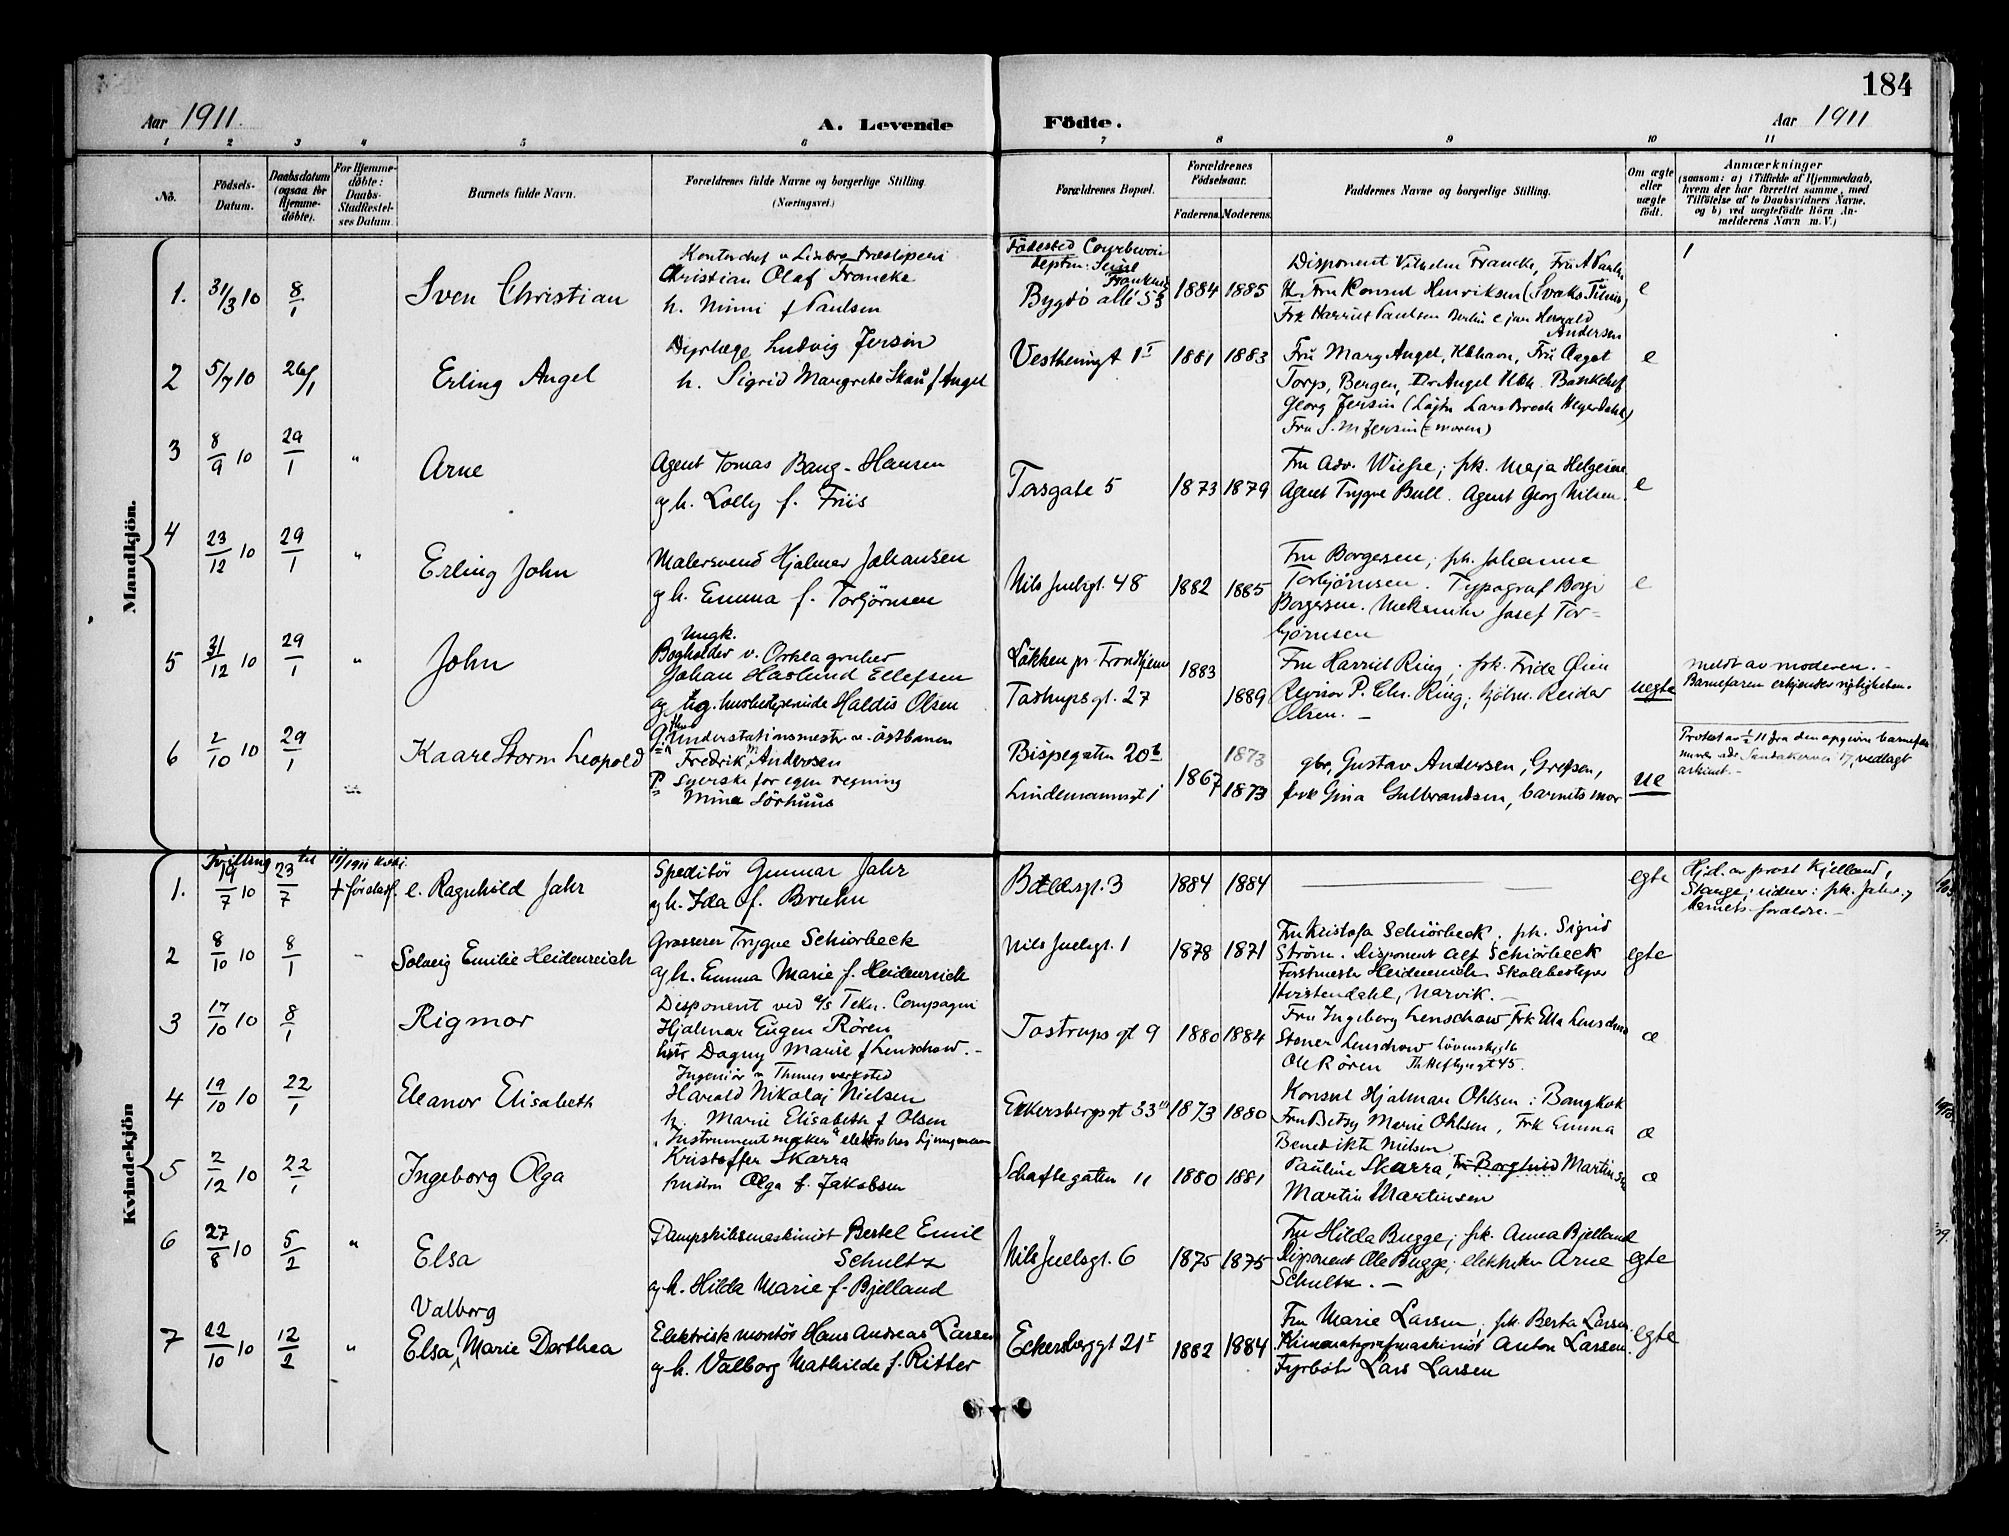 184
Aar 1911.
A. Levende
Födte.
Aar 1911
1 2 3 4 5 6 7 8 9 10 11
No.
Födsels-
Datum.
Daabsdatum
(ogsaa for
Hjemme-
döbte).
For Hjemme-
döbte:
Daabs-
Stadfæstel-
ses Datum
Barnets fulde Navn.
Forældrenes fulde Navne og borgerlige Stilling.
(Næringsvei.)
Forældrenes Bopæl.
Forældrenes
Födselsaar.
Faderens. Moderens.
Faddernes Navne og borgerlige Stilling.
Om ægte
eller
uægte
født.
Anmærkninger
(saasom: a) i Tilfælde af Hjemmedaab,
hvem der har forrettet samme, med
Tilføielse af to Daabsvidners Navne,
og b) ved uægtefödte Börn An-
melderens Navn m. V.)
Mandkjön.
1. 31/3 10 8/1 Sven Christian
Christian Olaf Francke
h. Minni f Paulsen
Födested Courbevoie
Bygdö allé 53 1884 1885
Disponent Vilhelm Francke, Fru A Paulsen
Fru Konsul Henriksen
Frk Harriet Paulsen Berlin
Andersen
e
2 5/7 10 26/1 Erling Angel
Dyrlæge Ludvig Jersin
h. Sigrid Margrete Skau f Angel
Vestheimgt 1 I 1881 1883
Fru Mary Angel, Kbhavn, Fru Aagot
Torp, Bergen, Dr Angel Kbh. Bankchef
Georg Jersin (Løjtn Lars Broch Heyerdahl)
Fru S. M Jersin (= moren)
e
3 8/9 10 29/1 " Arne
Agent Tomas Bang-Hansen
og h. Lolly f. Friis
Torsgate 5 1873 1879
Fru Adv. Wiese; frk. Maja Helgesen
Agent Trygve Bull. Agent Georg Nilsen.
e
4 23/12 10 29/1 " Erling John
Malersvend Hjalmar Johansen
og h. Emma f. Torbjörnsen
Nils Juelsgt. 48 1882 1885
Fru Borgersen; frk. Johanne
Torbjörnsen. Typograf Borge
Borgersen. Mekaniker Josef Tor-
björnsen
e
5 31/12 10 29/1 " John
Ungk.
Bogholder v. Orkla gruber
Johan Haslund Ellefsen
og ug. husbestyrerinde Haldis Olsen
Løkken pr. Trondhjem 1883
Tostrupsgt. 27 1889
Fru Harriet Ring; frk. Frida Øien
Revisor P. Chr. Ring; Reidar
Olsen. —
uegte
Meldt av moderen. -
Barnefaren erkjender rigtigheten.
6 2/10 10 29/1 Kaare Storm Leopold
Understationsmester v. Östbanen
Fredrik M Anderssen
Syerske for egen regning
Mina Sörhuus
Bispegaten 20 b 1867 1873
Lindemannsgt 1 1873
gbr, Gustav Anderssen, Grefsen,
frk Gina Gulbrandsen, barnets mor
ue
Protest av 1/2 11 fra den opgivne barnefar
vedlagt
Kvindekjön
1. Tvilling 19/7 10 23/7 e. Ragnhild Jahr
Speditør Gunnar Jahr
og h. Ida f. Bruhn
Boldsgt. 3 1884 1884
— —
egte
Hjd. av prost Kjelland,
Stange; vidner: frk. Jahr og
barnets forældre. —
2 8/10 10 8/1 Solveig Emilie Heidenreich
Grosserer Trygve Schiörbeck
og h. Emma Marie f. Heidenreich
Nils Juelsgt. 1 1878 1871
Fru Kristofa Schiörbeck. frk. Sigrid
Ström. Disponent Alf Schiörbeck
Forstmester Heidenreich Skolebestyrer
Narvik. —
egte
3 17/10 10 8/1 Rigmor
Disponent ved a/s Tekn. Compagni
Hjalmar Eugen Rören
hustr Dagny Marie f Lenschow. -
Tostrups gt 9 1880 1884
Fru Ingeborg Lenschow frk Ella Lenschow
Stener Lenschow
Ole Rören Th Heftyesgt 45.
æ
4 19/10 10 22/1 Eleanor Elisabeth
Ingeniør v Thunes verksted
Harald Nikolaj Nielsen
h. Marie Elisabeth f Olsen
Eckersbergsgt 33 III 1873 1880
Konsul Hjalmar Ohlsen i Bangkok
Fru Betsy Marie Ohlsen, Frk Emma
Benedikte Nilsen
æ
5 2/12 10 22/1 Ingeborg Olga
Kristoffer Skarra
hustru Olga f. Jakobsen
Schaftegaten 11 1880 1881
Pauline Skarra, Martinsen
Martin Martinsen
æ
6 27/8 10 5/2 " Elsa
Dampskibsmaskinist Bertel Emil
Schultz
og h. Hilda Marie f. Bjelland
Nils Juelsgt. 6 1875 1875
Fru Hilda Bugge; frk. Anna Bjelland
Disponent Ole Bugge; elektriker Arne
Schultz. —
egte
7 22/10 10 12/2 " Valborg
Elsa Marie Dorthea
Elektrisk montör Hans Andreas Larsen
og h. Valborg Mathilde f. Ritter
Eckersberggt 21 I 1882 1884
Fru Marie Larsen; frk. Berta Larsen
Kinematografmaskinist Anton Larsen.
Fyrböter Lars Larsen
egte